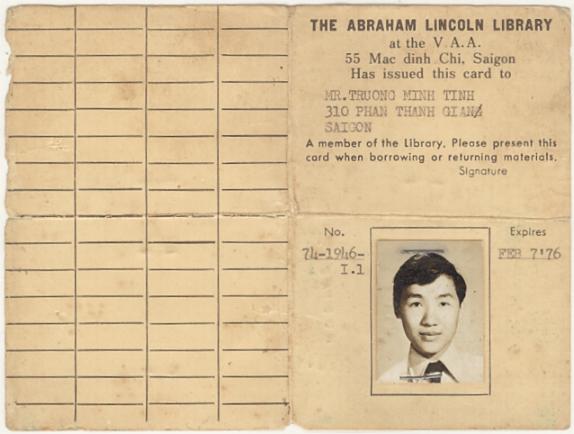 THE ABRAHAM LINCOLN LIBRARY
at the V.A.A.
55 Mac dinh Chi, Saigon
Has issued this card to
MR.TRUONG MINH TINH
310 PHAN THANH GIANG
SAIGON
A member of the Library. Please present this
card when borrowing or returning materials.
Signature
No.
74-1946-
I.1
Expires
FEB 7'76